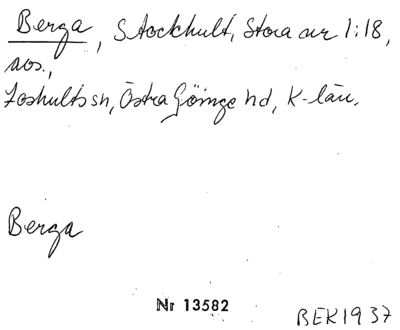 Berga, Stockhult, Stora nr 1:18,
avs.,
Loshults sn, Östra Göinge hd, K-län.
Berga
Nr 13582
BEK 1937